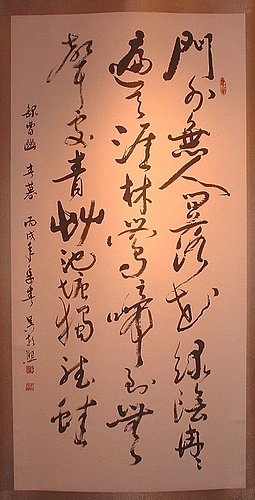 門外無人問落花綠陰冉々
遍天涯林鶯啼到無
聲處青艸池塘獨聽蛙
錄曹豳 春暮 丙戌年季春